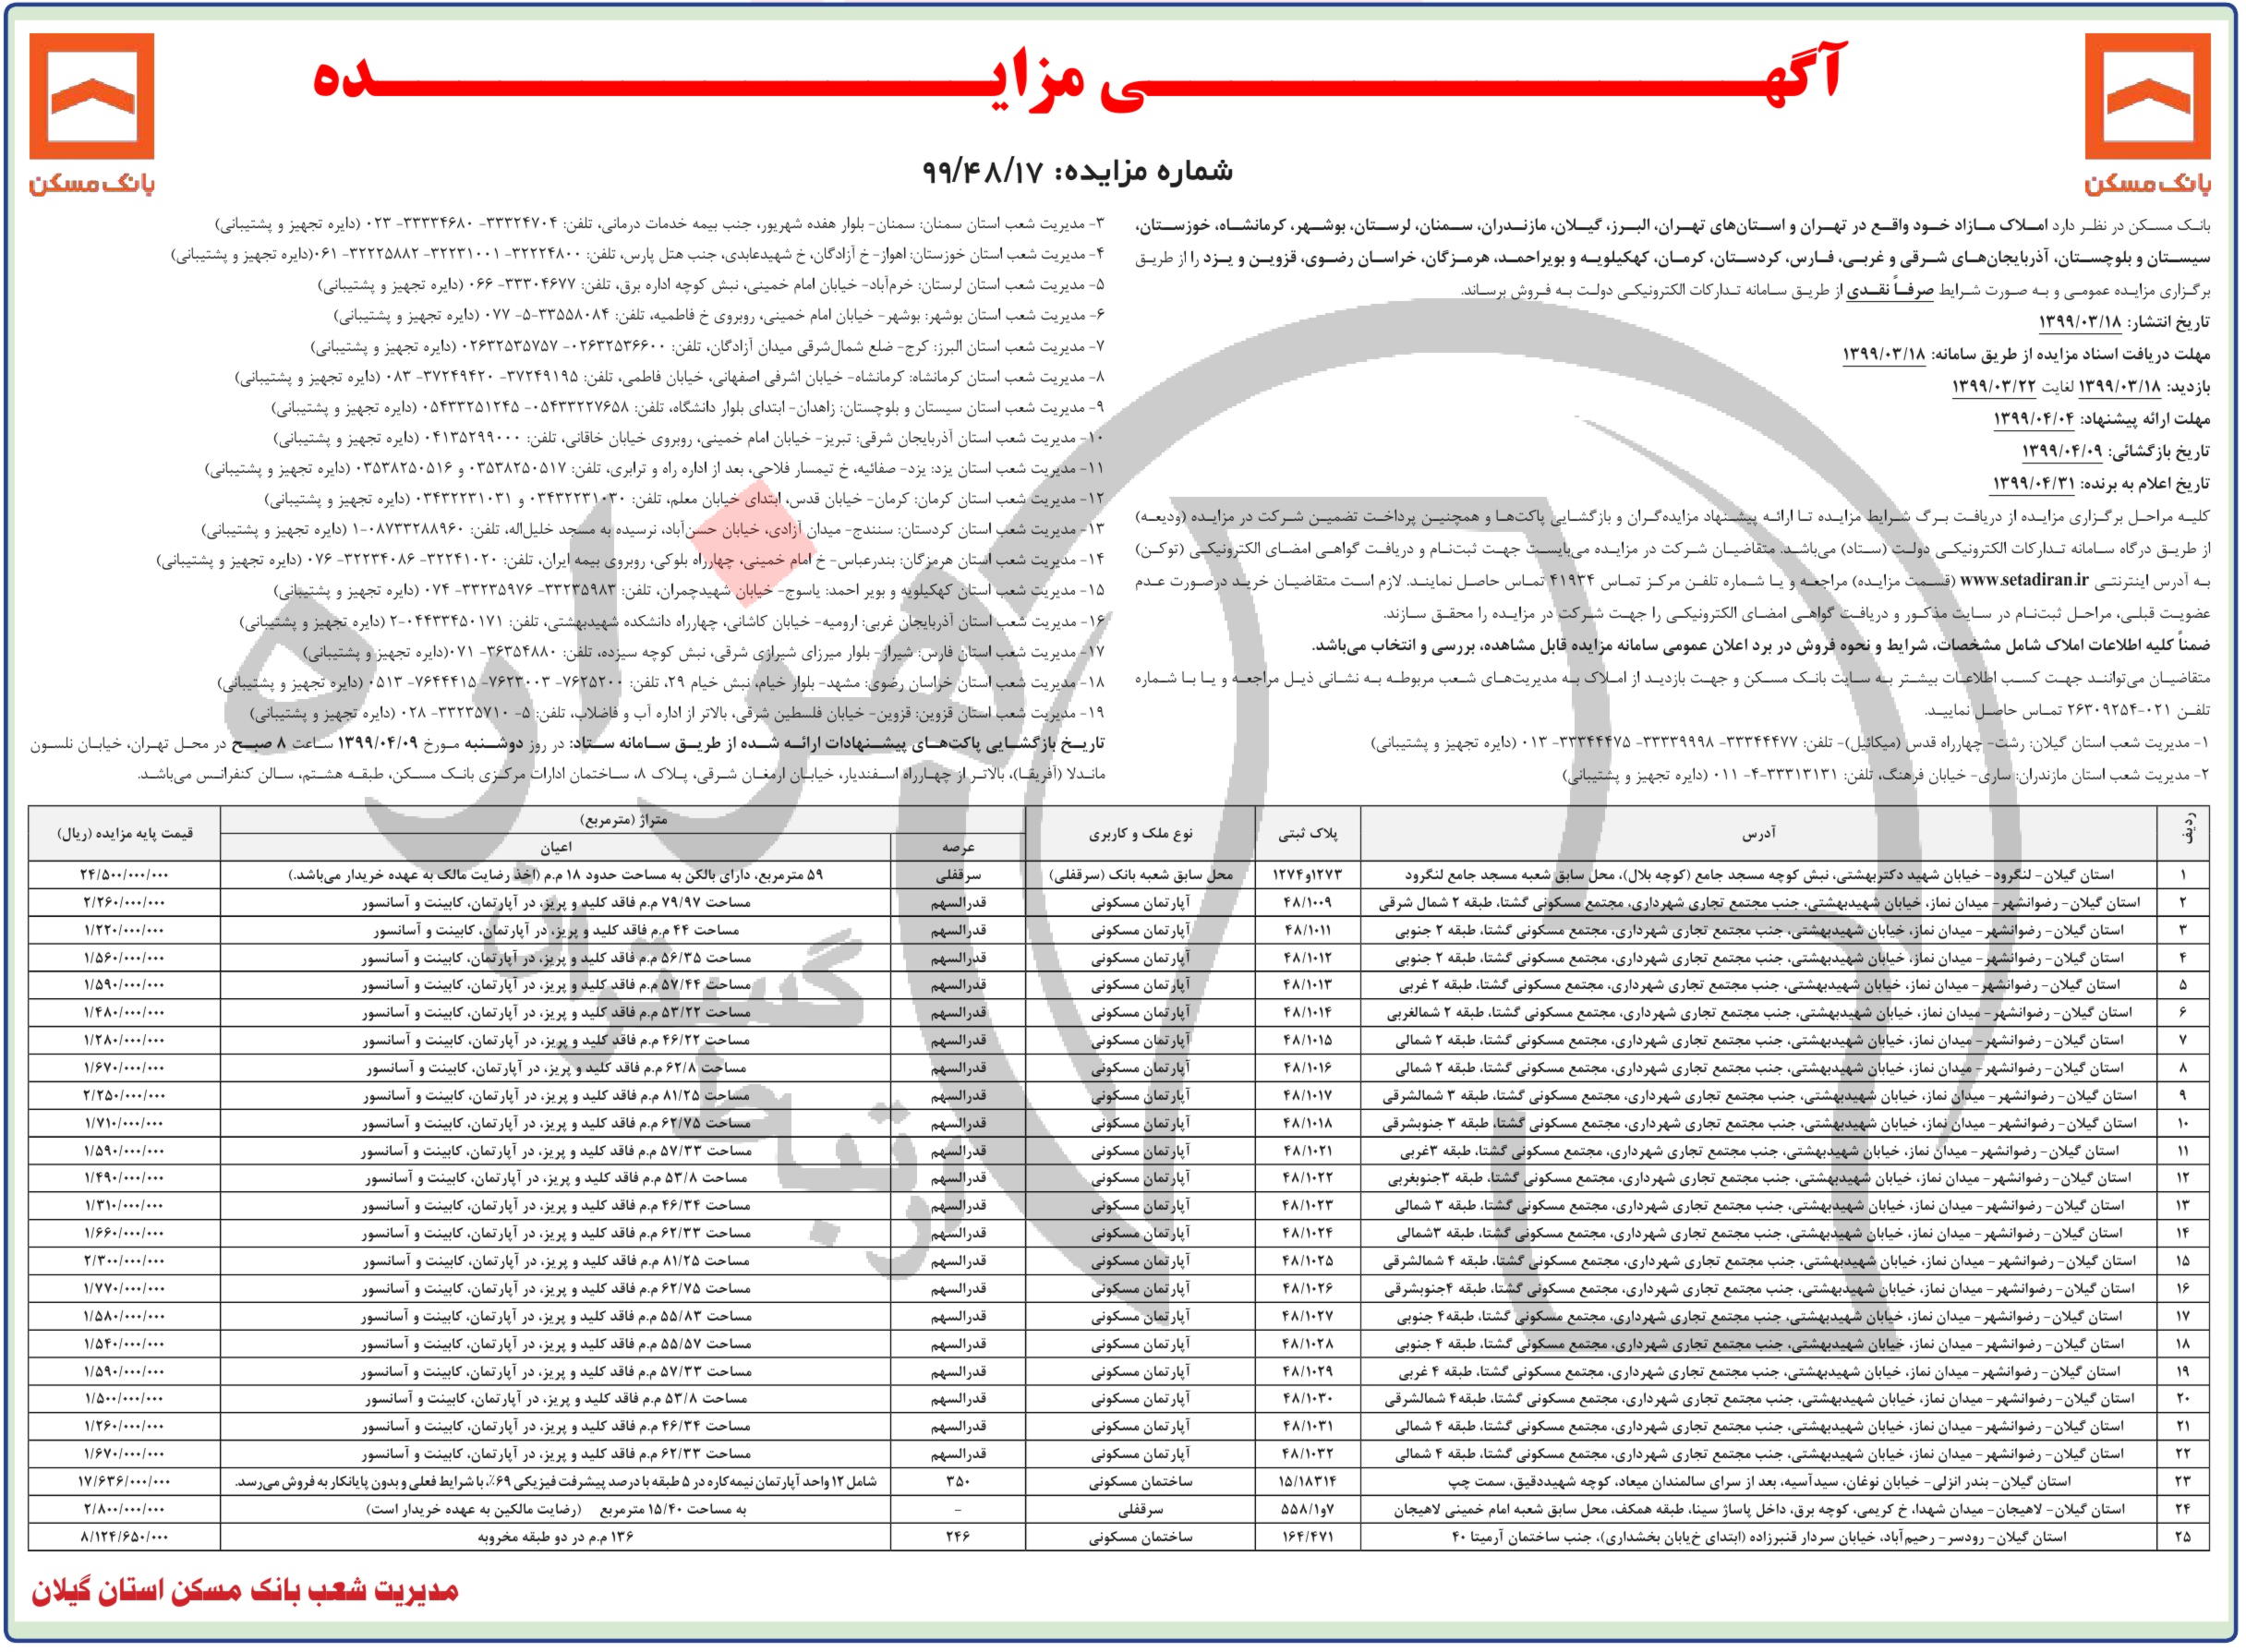 آگهی مزایده
بانک مسکن
بانک مسکن
شماره مزایده: ۹۹/۴۸/۱۷
بانک مسکن در نظر دارد املاک مازاد خود واقع در تهران و استان‌های تهران، البرز، گیلان، مازندران، سمنان، لرستان، بوشهر، کرمانشاه، خوزستان،
سیستان و بلوچستان، آذربایجان‌های شرقی و غربی، فارس، کردستان، کرمان، کهکیلویه و بویراحمد، هرمزگان، خراسان رضوی، قزوین و یزد را از طریق
برگزاری مزایده عمومی و به صورت شرایط صرفاً نقدی از طریق سامانه تدارکات الکترونیکی دولت به فروش برساند.
تاریخ انتشار: ۱۳۹۹/۰۳/۱۸
مهلت دریافت اسناد مزایده از طریق سامانه: ۱۳۹۹/۰۳/۱۸
بازدید: ۱۳۹۹/۰۳/۱۸ لغایت ۱۳۹۹/۰۳/۲۲
مهلت ارائه پیشنهاد: ۱۳۹۹/۰۴/۰۴
تاریخ بازگشائی: ۱۳۹۹/۰۴/۰۹
تاریخ اعلام به برنده: ۱۳۹۹/۰۴/۳۱
کلیه مراحل برگزاری مزایده از دریافت برگ شرایط مزایده تا ارائه پیشنهاد مزایده‌گران و بازگشایی پاکت‌ها و همچنین پرداخت تضمین شرکت در مزایده (ودیعه)
از طریق درگاه سامانه تدارکات الکترونیکی دولت (ستاد) می‌باشد. متقاضیان شرکت در مزایده می‌بایست جهت ثبت‌نام و دریافت گواهی امضای الکترونیکی (توکن)
به آدرس اینترنتی www.setadiran.ir (قسمت مزایده) مراجعه و یا شماره تلفن مرکز تماس ۴۱۹۳۴ تماس حاصل نمایند. لازم است متقاضیان خرید درصورت عدم
عضویت قبلی، مراحل ثبت‌نام در سایت مذکور و دریافت گواهی امضای الکترونیکی را جهت شرکت در مزایده را محقق سازند.
ضمناً کلیه اطلاعات املاک شامل مشخصات، شرایط و نحوه فروش در برد اعلان عمومی سامانه مزایده قابل مشاهده، بررسی و انتخاب می‌باشد.
متقاضیان می‌توانند جهت کسب اطلاعات بیشتر به سایت بانک مسکن و جهت بازدید از املاک به مدیریت‌های شعب مربوطه به نشانی ذیل مراجعه و یا با شماره
تلفن ۰۲۱-۲۶۳۰۹۲۵۴ تماس حاصل نمایید.
۱- مدیریت شعب استان گیلان: رشت- چهارراه قدس (میکائیل)- تلفن: ۳۳۳۴۴۴۷۷- ۳۳۳۳۹۹۹۸- ۳۳۳۴۴۴۷۵- ۰۱۳ (دایره تجهیز و پشتیبانی)
۲- مدیریت شعب استان مازندران: ساری- خیابان فرهنگ، تلفن: ۳۳۳۱۳۱۳۱-۴- ۰۱۱ (دایره تجهیز و پشتیبانی)
۳- مدیریت شعب استان سمنان: سمنان- بلوار هفده شهریور، جنب بیمه خدمات درمانی، تلفن: ۳۳۳۲۴۷۰۴- ۳۳۳۳۴۶۸۰- ۰۲۳ (دایره تجهیز و پشتیبانی)
۴- مدیریت شعب استان خوزستان: اهواز- خ آزادگان، خ شهیدعابدی، جنب هتل پارس، تلفن: ۳۲۲۲۴۸۰۰- ۳۲۲۳۱۰۰۱- ۳۲۲۲۵۸۸۲- ۰۶۱(دایره تجهیز و پشتیبانی)
۵- مدیریت شعب استان لرستان: خرم‌آباد- خیابان امام خمینی، نبش کوچه اداره برق، تلفن: ۳۳۳۰۴۶۷۷- ۰۶۶ (دایره تجهیز و پشتیبانی)
۶- مدیریت شعب استان بوشهر: بوشهر- خیابان امام خمینی، روبروی خ فاطمیه، تلفن: ۳۳۵۵۸۰۸۴-۵- ۰۷۷ (دایره تجهیز و پشتیبانی)
۷- مدیریت شعب استان البرز: کرج- ضلع شمال‌شرقی میدان آزادگان، تلفن: ۰۲۶۳۲۵۳۶۶۰۰- ۰۲۶۳۲۵۳۵۷۵۷ (دایره تجهیز و پشتیبانی)
۸- مدیریت شعب استان کرمانشاه: کرمانشاه- خیابان اشرفی اصفهانی، خیابان فاطمی، تلفن: ۳۷۲۴۹۱۹۵- ۳۷۲۴۹۴۲۰- ۰۸۳ (دایره تجهیز و پشتیبانی)
۹- مدیریت شعب استان سیستان و بلوچستان: زاهدان- ابتدای بلوار دانشگاه، تلفن: ۰۵۴۳۳۲۲۷۶۵۸- ۰۵۴۳۳۲۵۱۲۴۵ (دایره تجهیز و پشتیبانی)
۱۰- مدیریت شعب استان آذربایجان شرقی: تبریز- خیابان امام خمینی، روبروی خیابان خاقانی، تلفن: ۰۴۱۳۵۲۹۹۰۰۰ (دایره تجهیز و پشتیبانی)
۱۱- مدیریت شعب استان یزد: یزد- صفائیه، خ تیمسار فلاحی، بعد از اداره راه و ترابری، تلفن: ۰۳۵۳۸۲۵۰۵۱۷ و ۰۳۵۳۸۲۵۰۵۱۶ (دایره تجهیز و پشتیبانی)
۱۲- مدیریت شعب استان کرمان: کرمان- خیابان قدس، ابتدای خیابان معلم، تلفن: ۰۳۴۳۲۲۳۱۰۳۰ و ۰۳۴۳۲۲۳۱۰۳۱ (دایره تجهیز و پشتیبانی)
۱۳- مدیریت شعب استان کردستان: سنندج- میدان آزادی، خیابان حسن‌آباد، نرسیده به مسجد خلیل‌اله، تلفن: ۰۸۷۳۳۲۸۸۹۶۰-۱ (دایره تجهیز و پشتیبانی)
۱۴- مدیریت شعب استان هرمزگان: بندرعباس- خ امام خمینی، چهارراه بلوکی، روبروی بیمه ایران، تلفن: ۳۲۲۴۱۰۲۰- ۳۲۲۳۴۰۸۶- ۰۷۶ (دایره تجهیز و پشتیبانی)
۱۵- مدیریت شعب استان کهکیلویه و بویر احمد: یاسوج- خیابان شهیدچمران، تلفن: ۳۳۲۳۵۹۸۳- ۳۳۲۳۵۹۷۶- ۰۷۴ (دایره تجهیز و پشتیبانی)
۱۶- مدیریت شعب استان آذربایجان غربی: ارومیه- خیابان کاشانی، چهارراه دانشکده شهیدبهشتی، تلفن: ۰۴۴۳۳۴۵۰۱۷۱-۲ (دایره تجهیز و پشتیبانی)
۱۷- مدیریت شعب استان فارس: شیراز- بلوار میرزای شیرازی شرقی، نبش کوچه سیزده، تلفن: ۳۶۳۵۴۸۸۰- ۰۷۱(دایره تجهیز و پشتیبانی)
۱۸- مدیریت شعب استان خراسان رضوی: مشهد- بلوار خیام، نبش خیام ۲۹، تلفن: ۷۶۲۵۲۰۰- ۷۶۲۳۰۰۳- ۷۶۴۴۴۱۵- ۰۵۱۳ (دایره تجهیز و پشتیبانی)
۱۹- مدیریت شعب استان قزوین: قزوین- خیابان فلسطین شرقی، بالاتر از اداره آب و فاضلاب، تلفن: ۵- ۳۳۲۳۵۷۱۰- ۰۲۸ (دایره تجهیز و پشتیبانی)
تاریخ بازگشایی پاکت‌های پیشنهادات ارائه شده از طریق سامانه ستاد: در روز دوشنبه مورخ ۱۳۹۹/۰۴/۰۹ ساعت ۸ صبح در محل تهران، خیابان نلسون
ماندلا (آفریقا)، بالاتر از چهارراه اسفندیار، خیابان ارمغان شرقی، پلاک ۸، ساختمان ادارات مرکزی بانک مسکن، طبقه هشتم، سالن کنفرانس می‌باشد.
ردیف آدرس پلاک ثبتی نوع ملک و کاربری متراژ (مترمربع) قیمت پایه مزایده (ریال)
عرصه اعیان
۱ استان گیلان- لنگرود- خیابان شهید دکتربهشتی، نبش کوچه مسجد جامع (کوچه بلال)، محل سابق شعبه مسجد جامع لنگرود ۱۲۷۳و۱۲۷۴ محل سابق شعبه بانک (سرقفلی) سرقفلی ۵۹ مترمربع، دارای بالکن به مساحت حدود ۱۸ م.م (اخذ رضایت مالک به عهده خریدار می‌باشد.) ۲۴/۵۰۰/۰۰۰/۰۰۰
۲ استان گیلان- رضوانشهر- میدان نماز، خیابان شهیدبهشتی، جنب مجتمع تجاری شهرداری، مجتمع مسکونی گشتا، طبقه ۲ شمال شرقی ۴۸/۱۰۰۹ آپارتمان مسکونی قدرالسهم مساحت ۷۹/۹۷ م.م فاقد کلید و پریز، در آپارتمان، کابینت و آسانسور ۲/۲۶۰/۰۰۰/۰۰۰
۳ استان گیلان- رضوانشهر- میدان نماز، خیابان شهیدبهشتی، جنب مجتمع تجاری شهرداری، مجتمع مسکونی گشتا، طبقه ۲ جنوبی ۴۸/۱۰۱۱ آپارتمان مسکونی قدرالسهم مساحت ۴۴ م.م فاقد کلید و پریز، در آپارتمان، کابینت و آسانسور ۱/۲۲۰/۰۰۰/۰۰۰
۴ استان گیلان- رضوانشهر- میدان نماز، خیابان شهیدبهشتی، جنب مجتمع تجاری شهرداری، مجتمع مسکونی گشتا، طبقه ۲ جنوبی ۴۸/۱۰۱۲ آپارتمان مسکونی قدرالسهم مساحت ۵۶/۳۵ م.م فاقد کلید و پریز، در آپارتمان، کابینت و آسانسور ۱/۵۶۰/۰۰۰/۰۰۰
۵ استان گیلان- رضوانشهر- میدان نماز، خیابان شهیدبهشتی، جنب مجتمع تجاری شهرداری، مجتمع مسکونی گشتا، طبقه ۲ غربی ۴۸/۱۰۱۳ آپارتمان مسکونی قدرالسهم مساحت ۵۷/۴۴ م.م فاقد کلید و پریز، در آپارتمان، کابینت و آسانسور ۱/۵۹۰/۰۰۰/۰۰۰
۶ استان گیلان- رضوانشهر- میدان نماز، خیابان شهیدبهشتی، جنب مجتمع تجاری شهرداری، مجتمع مسکونی گشتا، طبقه ۲ شمالغربی ۴۸/۱۰۱۴ آپارتمان مسکونی قدرالسهم مساحت ۵۳/۲۲ م.م فاقد کلید و پریز، در آپارتمان، کابینت و آسانسور ۱/۴۸۰/۰۰۰/۰۰۰
۷ استان گیلان- رضوانشهر- میدان نماز، خیابان شهیدبهشتی، جنب مجتمع تجاری شهرداری، مجتمع مسکونی گشتا، طبقه ۲ شمالی ۴۸/۱۰۱۵ آپارتمان مسکونی قدرالسهم مساحت ۴۶/۲۲ م.م فاقد کلید و پریز، در آپارتمان، کابینت و آسانسور ۱/۲۸۰/۰۰۰/۰۰۰
۸ استان گیلان- رضوانشهر- میدان نماز، خیابان شهیدبهشتی، جنب مجتمع تجاری شهرداری، مجتمع مسکونی گشتا، طبقه ۲ شمالی ۴۸/۱۰۱۶ آپارتمان مسکونی قدرالسهم مساحت ۶۲/۸ م.م فاقد کلید و پریز، در آپارتمان، کابینت و آسانسور ۱/۶۷۰/۰۰۰/۰۰۰
۹ استان گیلان- رضوانشهر- میدان نماز، خیابان شهیدبهشتی، جنب مجتمع تجاری شهرداری، مجتمع مسکونی گشتا، طبقه ۳ شمالشرقی ۴۸/۱۰۱۷ آپارتمان مسکونی قدرالسهم مساحت ۸۱/۲۵ م.م فاقد کلید و پریز، در آپارتمان، کابینت و آسانسور ۲/۲۵۰/۰۰۰/۰۰۰
۱۰ استان گیلان- رضوانشهر- میدان نماز، خیابان شهیدبهشتی، جنب مجتمع تجاری شهرداری، مجتمع مسکونی گشتا، طبقه ۳ جنوبشرقی ۴۸/۱۰۱۸ آپارتمان مسکونی قدرالسهم مساحت ۶۲/۷۵ م.م فاقد کلید و پریز، در آپارتمان، کابینت و آسانسور ۱/۷۱۰/۰۰۰/۰۰۰
۱۱ استان گیلان- رضوانشهر- میدان نماز، خیابان شهیدبهشتی، جنب مجتمع تجاری شهرداری، مجتمع مسکونی گشتا، طبقه ۳غربی ۴۸/۱۰۲۱ آپارتمان مسکونی قدرالسهم مساحت ۵۷/۳۳ م.م فاقد کلید و پریز، در آپارتمان، کابینت و آسانسور ۱/۵۹۰/۰۰۰/۰۰۰
۱۲ استان گیلان- رضوانشهر- میدان نماز، خیابان شهیدبهشتی، جنب مجتمع تجاری شهرداری، مجتمع مسکونی گشتا، طبقه ۳جنوبغربی ۴۸/۱۰۲۲ آپارتمان مسکونی قدرالسهم مساحت ۵۳/۸ م.م فاقد کلید و پریز، در آپارتمان، کابینت و آسانسور ۱/۴۹۰/۰۰۰/۰۰۰
۱۳ استان گیلان- رضوانشهر- میدان نماز، خیابان شهیدبهشتی، جنب مجتمع تجاری شهرداری، مجتمع مسکونی گشتا، طبقه ۳ شمالی ۴۸/۱۰۲۳ آپارتمان مسکونی قدرالسهم مساحت ۴۶/۳۴ م.م فاقد کلید و پریز، در آپارتمان، کابینت و آسانسور ۱/۳۱۰/۰۰۰/۰۰۰
۱۴ استان گیلان- رضوانشهر- میدان نماز، خیابان شهیدبهشتی، جنب مجتمع تجاری شهرداری، مجتمع مسکونی گشتا، طبقه ۳شمالی ۴۸/۱۰۲۴ آپارتمان مسکونی قدرالسهم مساحت ۶۲/۳۳ م.م فاقد کلید و پریز، در آپارتمان، کابینت و آسانسور ۱/۶۶۰/۰۰۰/۰۰۰
۱۵ استان گیلان- رضوانشهر- میدان نماز، خیابان شهیدبهشتی، جنب مجتمع تجاری شهرداری، مجتمع مسکونی گشتا، طبقه ۴ شمالشرقی ۴۸/۱۰۲۵ آپارتمان مسکونی قدرالسهم مساحت ۸۱/۲۵ م.م فاقد کلید و پریز، در آپارتمان، کابینت و آسانسور ۲/۳۰۰/۰۰۰/۰۰۰
۱۶ استان گیلان- رضوانشهر- میدان نماز، خیابان شهیدبهشتی، جنب مجتمع تجاری شهرداری، مجتمع مسکونی گشتا، طبقه ۴جنوبشرقی ۴۸/۱۰۲۶ آپارتمان مسکونی قدرالسهم مساحت ۶۲/۷۵ م.م فاقد کلید و پریز، در آپارتمان، کابینت و آسانسور ۱/۷۷۰/۰۰۰/۰۰۰
۱۷ استان گیلان- رضوانشهر- میدان نماز، خیابان شهیدبهشتی، جنب مجتمع تجاری شهرداری، مجتمع مسکونی گشتا، طبقه۴ جنوبی ۴۸/۱۰۲۷ آپارتمان مسکونی قدرالسهم مساحت ۵۵/۸۳ م.م فاقد کلید و پریز، در آپارتمان، کابینت و آسانسور ۱/۵۸۰/۰۰۰/۰۰۰
۱۸ استان گیلان- رضوانشهر- میدان نماز، خیابان شهیدبهشتی، جنب مجتمع تجاری شهرداری، مجتمع مسکونی گشتا، طبقه ۴ جنوبی ۴۸/۱۰۲۸ آپارتمان مسکونی قدرالسهم مساحت ۵۵/۵۷ م.م فاقد کلید و پریز، در آپارتمان، کابینت و آسانسور ۱/۵۴۰/۰۰۰/۰۰۰
۱۹ استان گیلان- رضوانشهر- میدان نماز، خیابان شهیدبهشتی، جنب مجتمع تجاری شهرداری، مجتمع مسکونی گشتا، طبقه ۴ غربی ۴۸/۱۰۲۹ آپارتمان مسکونی قدرالسهم مساحت ۵۷/۳۳ م.م فاقد کلید و پریز، در آپارتمان، کابینت و آسانسور ۱/۵۹۰/۰۰۰/۰۰۰
۲۰ استان گیلان- رضوانشهر- میدان نماز، خیابان شهیدبهشتی، جنب مجتمع تجاری شهرداری، مجتمع مسکونی گشتا، طبقه۴ شمالشرقی ۴۸/۱۰۳۰ آپارتمان مسکونی قدرالسهم مساحت ۵۳/۸ م.م فاقد کلید و پریز، در آپارتمان، کابینت و آسانسور ۱/۵۰۰/۰۰۰/۰۰۰
۲۱ استان گیلان- رضوانشهر- میدان نماز، خیابان شهیدبهشتی، جنب مجتمع تجاری شهرداری، مجتمع مسکونی گشتا، طبقه ۴ شمالی ۴۸/۱۰۳۱ آپارتمان مسکونی قدرالسهم مساحت ۴۶/۳۴ م.م فاقد کلید و پریز، در آپارتمان، کابینت و آسانسور ۱/۲۶۰/۰۰۰/۰۰۰
۲۲ استان گیلان- رضوانشهر- میدان نماز، خیابان شهیدبهشتی، جنب مجتمع تجاری شهرداری، مجتمع مسکونی گشتا، طبقه ۴ شمالی ۴۸/۱۰۳۲ آپارتمان مسکونی قدرالسهم مساحت ۶۲/۳۳ م.م فاقد کلید و پریز، در آپارتمان، کابینت و آسانسور ۱/۶۷۰/۰۰۰/۰۰۰
۲۳ استان گیلان- بندر انزلی- خیابان نوغان، سیدآسیه، بعد از سرای سالمندان میعاد، کوچه شهیددقیق، سمت چپ ۱۵/۱۸۳۱۴ ساختمان مسکونی ۳۵۰ شامل ۱۲ واحد آپارتمان نیمه‌کاره در ۵ طبقه با درصد پیشرفت فیزیکی ۶۹٪، با شرایط فعلی و بدون پایانکار به فروش می‌رسد. ۱۷/۶۳۶/۰۰۰/۰۰۰
۲۴ استان گیلان- لاهیجان- میدان شهدا، خ کریمی، کوچه برق، داخل پاساژ سینا، طبقه همکف، محل سابق شعبه امام خمینی لاهیجان ۵۵۸/۱و۷ سرقفلی - به مساحت ۱۵/۴۰ مترمربع (رضایت مالکین به عهده خریدار است) ۲/۸۰۰/۰۰۰/۰۰۰
۲۵ استان گیلان- رودسر- رحیم‌آباد، خیابان سردار قنبرزاده (ابتدای خیابان بخشداری)، جنب ساختمان آرمیتا ۴۰ ۱۶۴/۴۷۱ ساختمان مسکونی ۲۴۶ ۱۳۶ م.م در دو طبقه مخروبه ۸/۱۲۴/۶۵۰/۰۰۰
مدیریت شعب بانک مسکن استان گیلان